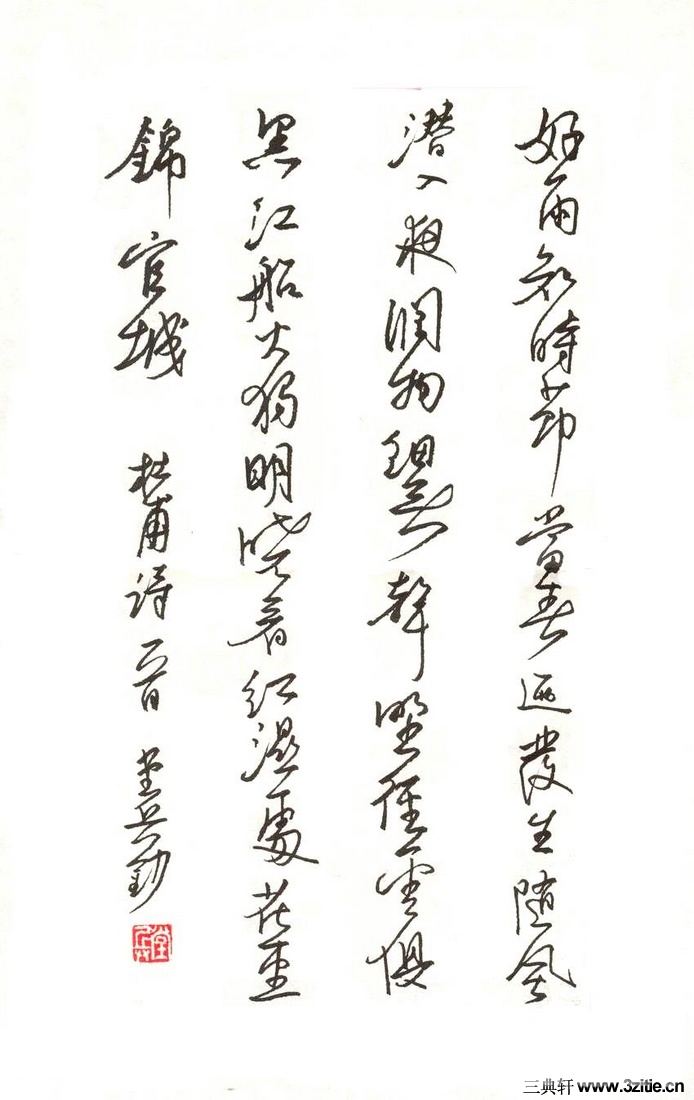 好雨知時節當春迺發生隨風
潜入夜潤物細無聲野徑雲俱
黑江船火獨明曉看紅濕處花重
錦官城 杜甫詩一首
三典轩 www.3zitie.cn